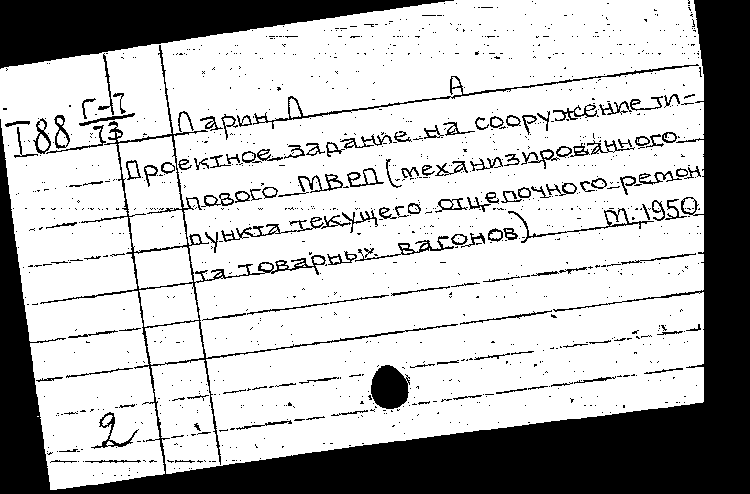 Т88 Г-П/73
Ларин, Л А
Проектное задание на сооружение ти-
пового МВРП (механизированного
пункта текущего отцепочного ремон
та товарных вагонов). М., 1950
2